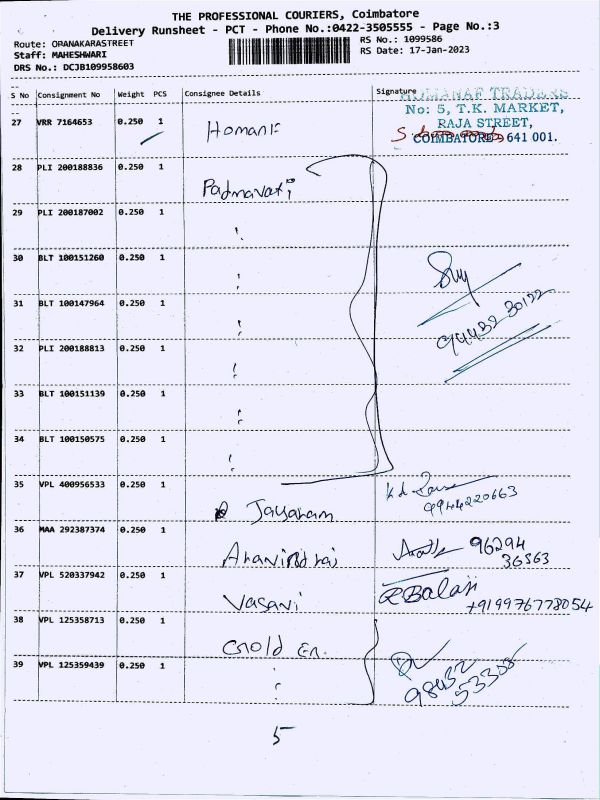 THE PROFESSIONAL COURIERS, Coimbatore
Delivery Runsheet - PCT - Phone No.:0422-3505555 - Page No.:3
Route: OPANAKARASTREET
Staff: MAHESHWARI
DRS No.: DCJB109958603
RS No.: 1099586
RS Date: 17-Jan-2023
S No Consignment No Weight PCS Consignee Details Signature
HOMANAF TRADERS
No: 5, T.K. MARKET,
RAJA STREET,
COIMBATORE - 641 001.
27 VRR 7164653 0.250 1 Homanf
28 PLI 200188836 0.250 1 Padmavati
29 PLI 200187002 0.250 1 "
30 BLT 100151260 0.250 1 "
31 BLT 100147964 0.250 1 "
94432 30122
32 PLI 200188813 0.250 1 "
33 BLT 100151139 0.250 1 "
34 BLT 100150575 0.250 1 "
35 VPL 400956533 0.250 1 Jayaram
9944220663
36 MAA 292387374 0.250 1 Aravind raj
96294
36563
37 VPL 520337942 0.250 1 Vasavi R Balaji
+919976778054
38 VPL 125358713 0.250 1 Gold En.
39 VPL 125359439 0.250 1 "
98432
53308
5